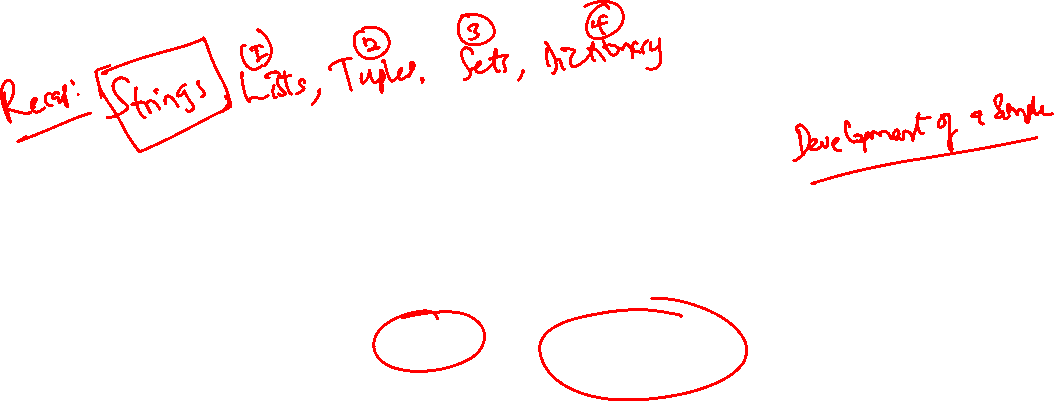 ① ② ③ ④
Recap: Strings Lists, Tuples, Sets, Dictionary
Development of a Simple